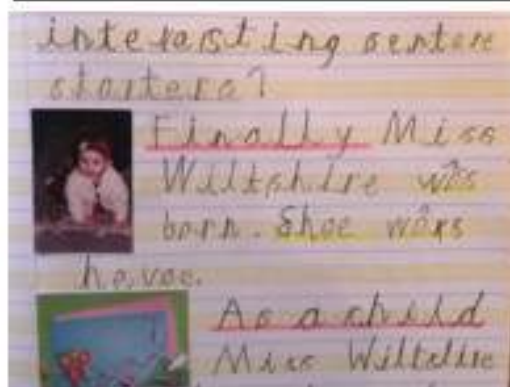 interersting senten
starters?
Finally Miss
Wiltshire was
born. Shoe wars
havoc.
As a child
Miss